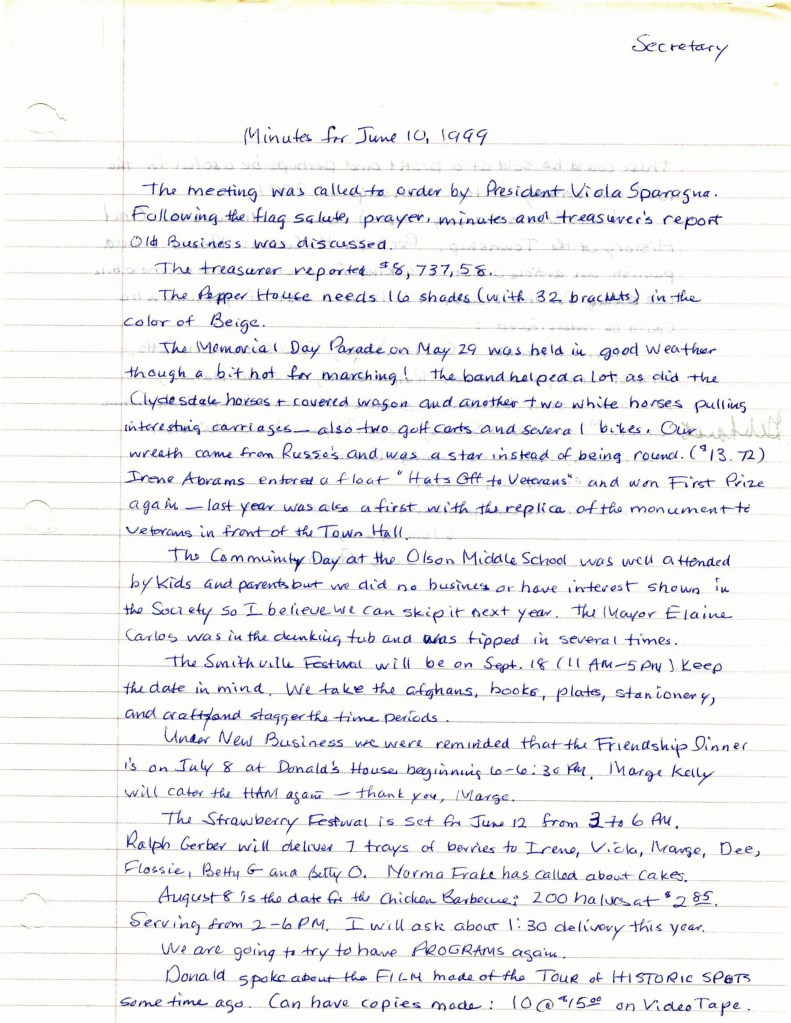 Secretary
Minutes for June 10, 1999
The meeting was called to order by President Viola Sparagna.
Following the flag salute, prayer, minutes and treasurer's report
Old Business was discussed.
The treasurer reported $8,737.58.
The Pepper House needs 16 shades (with 32 brackets) in the
color of Beige.
The Memorial Day Parade on May 29 was held in good weather
though a bit hot for marching! The band helped a lot as did the
Clydesdale horses + covered wagon and another two white horses pulling
interesting carriages - also two golf carts and several bikes. Our
wreath came from Russo's and was a star instead of being round. ($13.72)
Irene Abrams entered a float "Hats Off to Veterans" and won First Prize
again - last year was also a first with the replica of the monument to
Veterans in front of the Town Hall.
The Community Day at the Olson Middle School was well attended
by kids and parents but we did no business or have interest shown in
the Society so I believe we can skip it next year. The Mayor Elaine
Carlos was in the dunking tub and was tipped in several times.
The Smithville Festival will be on Sept. 18 (11 AM-5 PM) Keep
the date in mind. We take the afghans, books, plates, stationery,
and crafts and stagger the time periods.
Under New Business we were reminded that the Friendship Dinner
is on July 8 at Donald's House, beginning 6-6:30 PM. Marge Kelly
will cater the HAM again - thank you, Marge.
The Strawberry Festival is set for June 12 from 3 to 6 PM.
Ralph Gerber will deliver 7 trays of berries to Irene, Viola, Marge, Dee,
Flossie, Betty G and Betty O. Norma Frake has called about cakes.
August 8 is the date for the Chicken Barbecue; 200 halves at $2.85.
Serving from 2-6 PM. I will ask about 1:30 delivery this year.
We are going to try to have PROGRAMS again.
Donald spoke about the FILM made of the TOUR of HISTORIC SPOTS
some time ago. Can have copies made: 10 @ $15.00 on Video Tape.